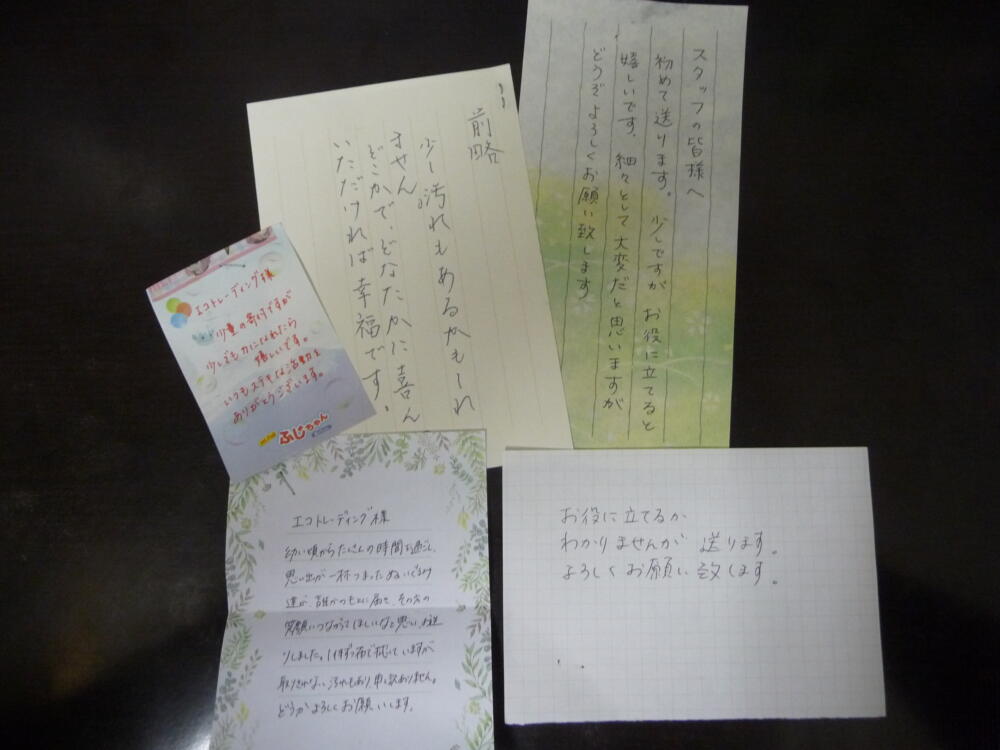 スタッフの皆様へ
初めて送ります。少しですが お役に立てると
嬉しいです。細々として大変だと思いますが
どうぞよろしくお願い致します
前略
少し汚れもあるかもしれ
ません。
どこかで、どなたかに喜ん
でいただければ幸福です。
エコトレーディング様
少量の寄付ですが
少しでも力になれたら
嬉しいです。
いつもステキな活動を
ありがとうございます。
ふじちゃん
エコトレーディング様
幼い頃からたくさんの時間を過ごし、
思い出が一杯つまったぬいぐるみ
達が、誰かのもとに届き、その方の
笑顔につながってほしいなと思い、お送
りしました。1件ずつ布で拭いていますが
取りきれない汚れもあり、申し訳ありません。
どうかよろしくお願いします。
お役に立てるか
わかりませんが 送ります。
よろしくお願い致します。